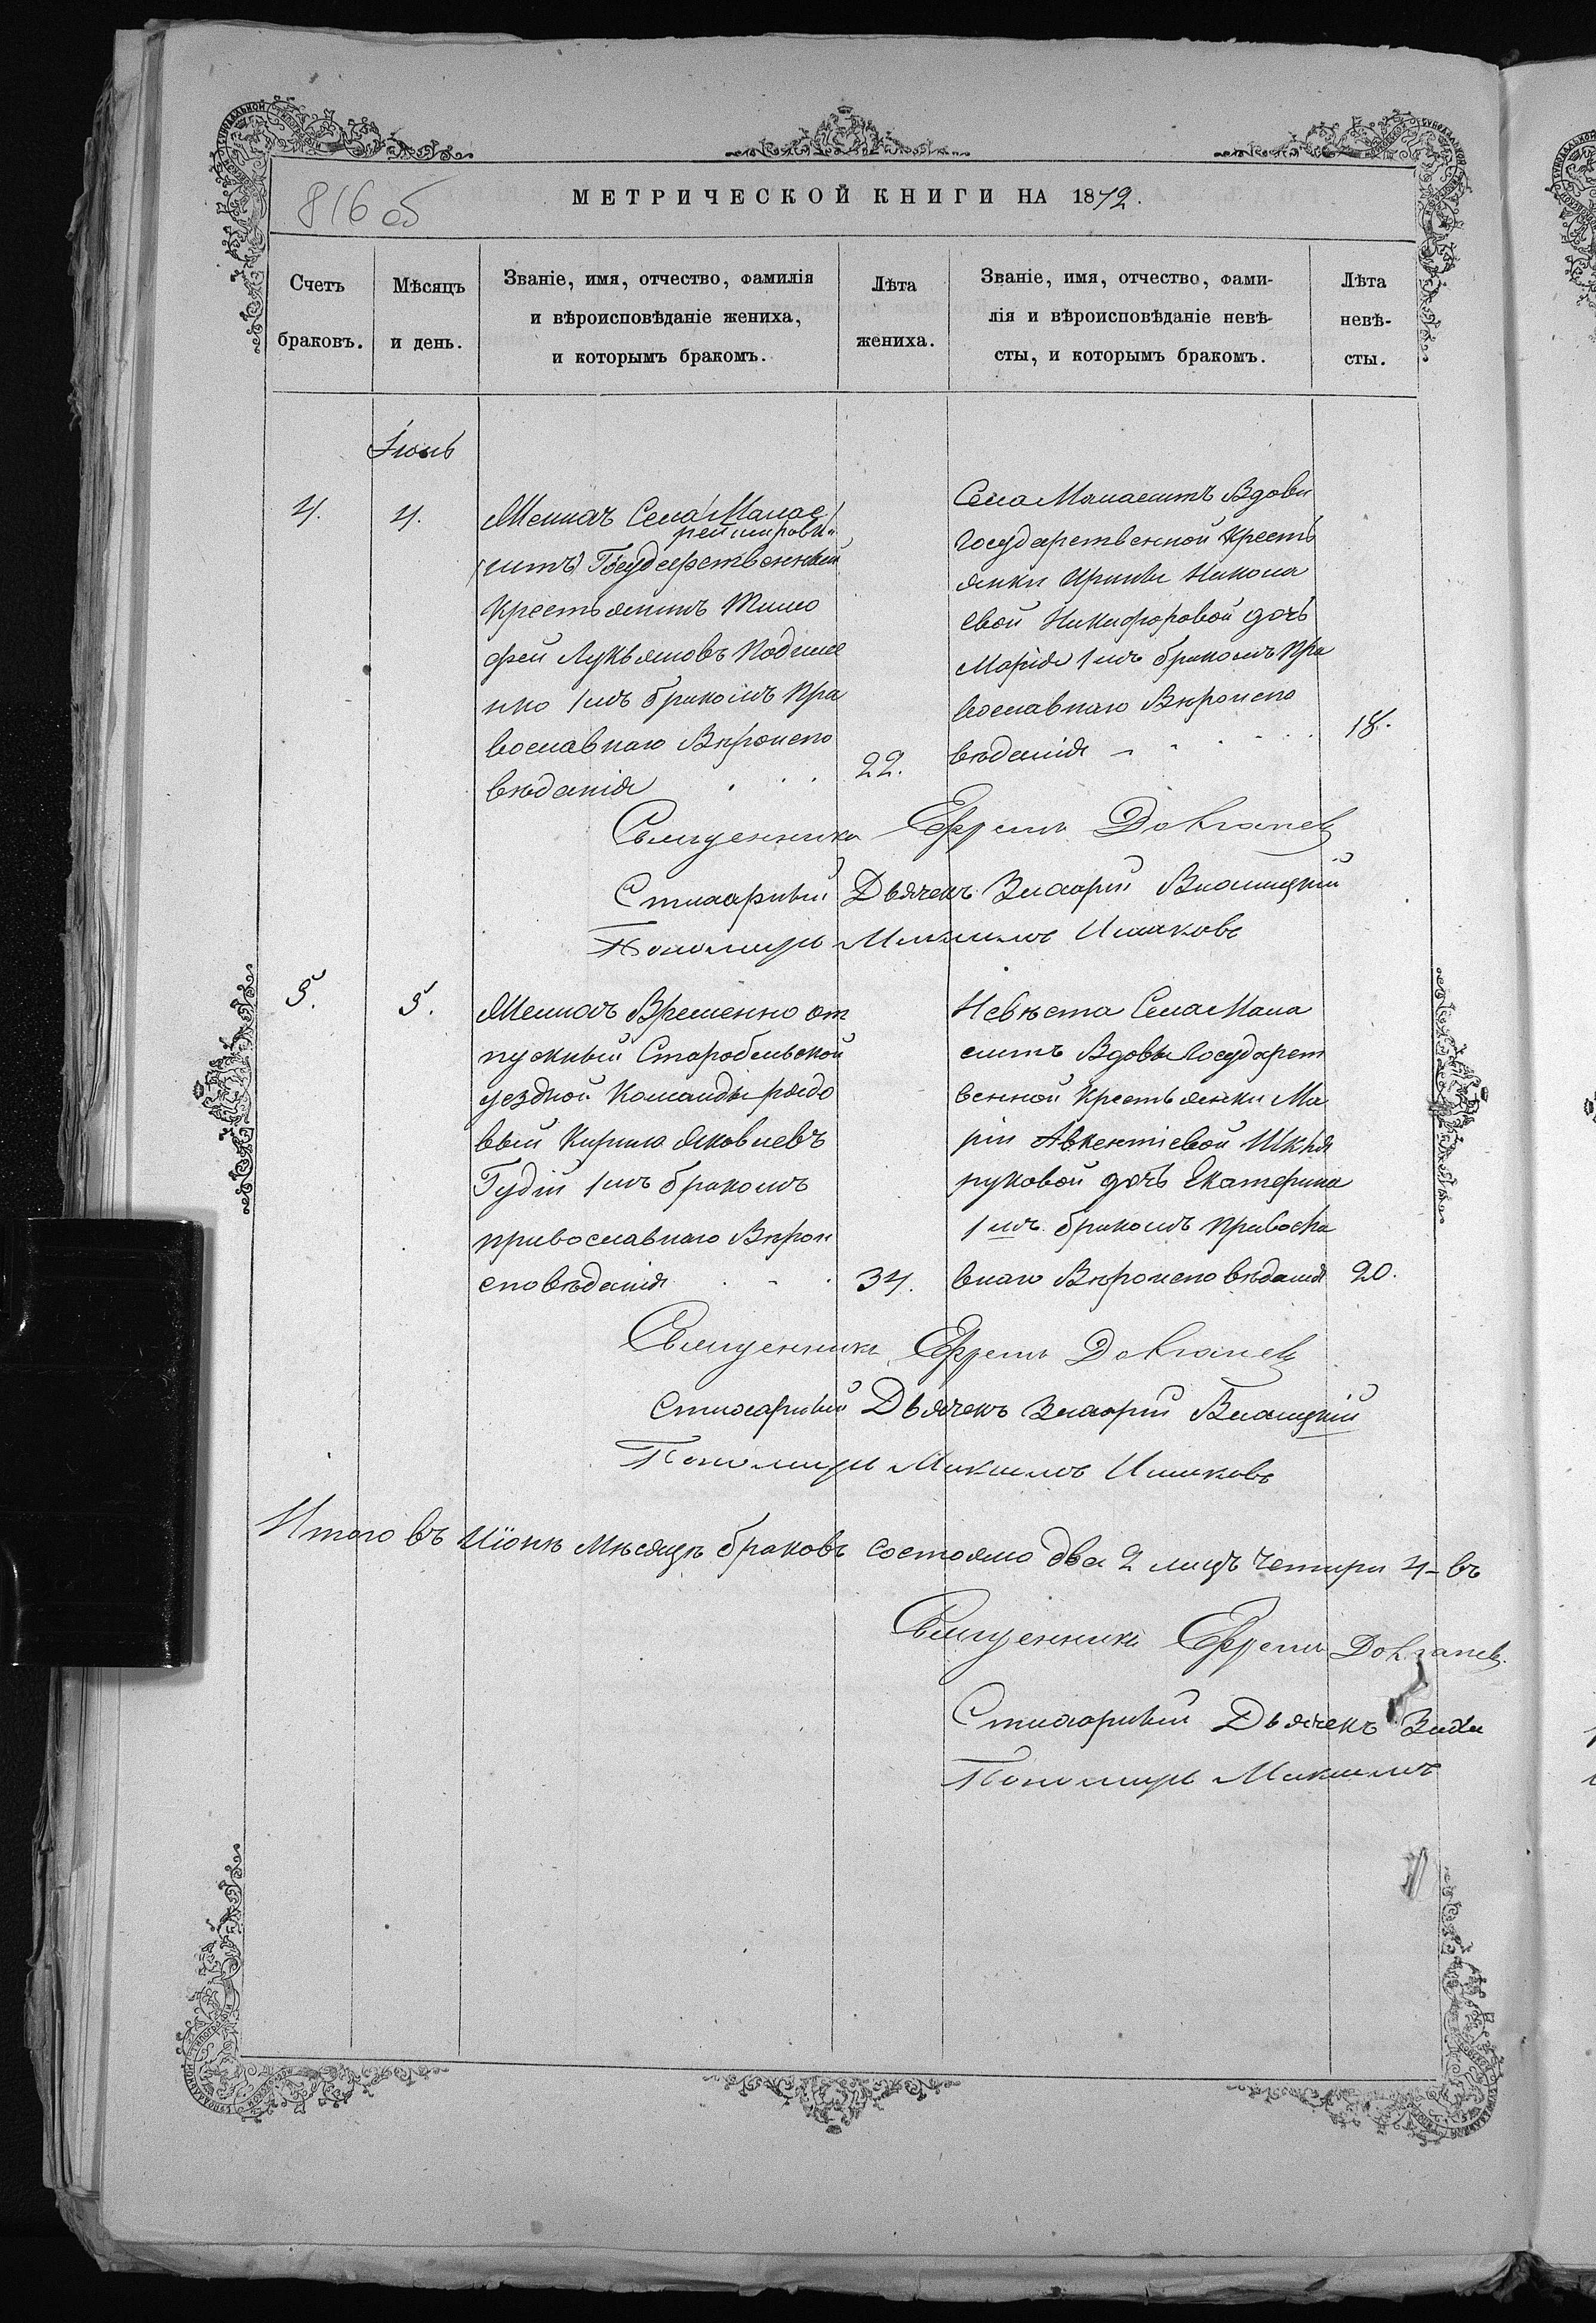 816 об
МЕТРИЧЕСКОЙ КНИГИ НА 1872.
Счетъ браковъ.
Мѣсяцъ и день.
Званіе, имя, отчество, фамилія
и вѣроисповѣданіе жениха,
и которымъ бракомъ.
Лѣта жениха.
Званіе, имя, отчество, фами-
лія и вѣроисповѣданіе невѣ-
сты, и которымъ бракомъ.
Лѣта невѣ-
сты.
Іюнь
4.
4.
Женихъ Села
Государственный
Крестьянинъ Тимо
фей Лукьяновъ
нко 1мъ бракомъ Пра
вославнаго Вѣроиспо
вѣданія
22.
Села Вдовы
Государственной Кресть
янки Ирины Никола
евой Никифоровой дочь
Марія 1мъ бракомъ Пра
вославнаго Вѣроиспо
вѣданія
18.
Священникъ Ефремъ
Стихарный Дьячекъ Захарій
Пономарь
5.
5.
Женихъ Временно от
пускный Старобельской
уездной Команды рядо
вый Кирило Яковлевъ
Гудій 1мъ бракомъ
православнаго Вѣрои
сповѣданія
34.
Невѣста Села
Вдовы Государст
венной Крестьянки Ма
ріи Авкентіевой
дочь Екатерина
1мъ бракомъ Правосла
внаго Вѣроисповѣданія
20.
Священникъ Ефремъ
Стихарный Дьячекъ Захарій
Пономарь
Итого въ Іюнѣ Мѣсяцѣ браковъ состояло два 2 лицъ четыри 4-въ
Священникъ Ефремъ
Стихарный Дьячекъ Заха
Пономарь